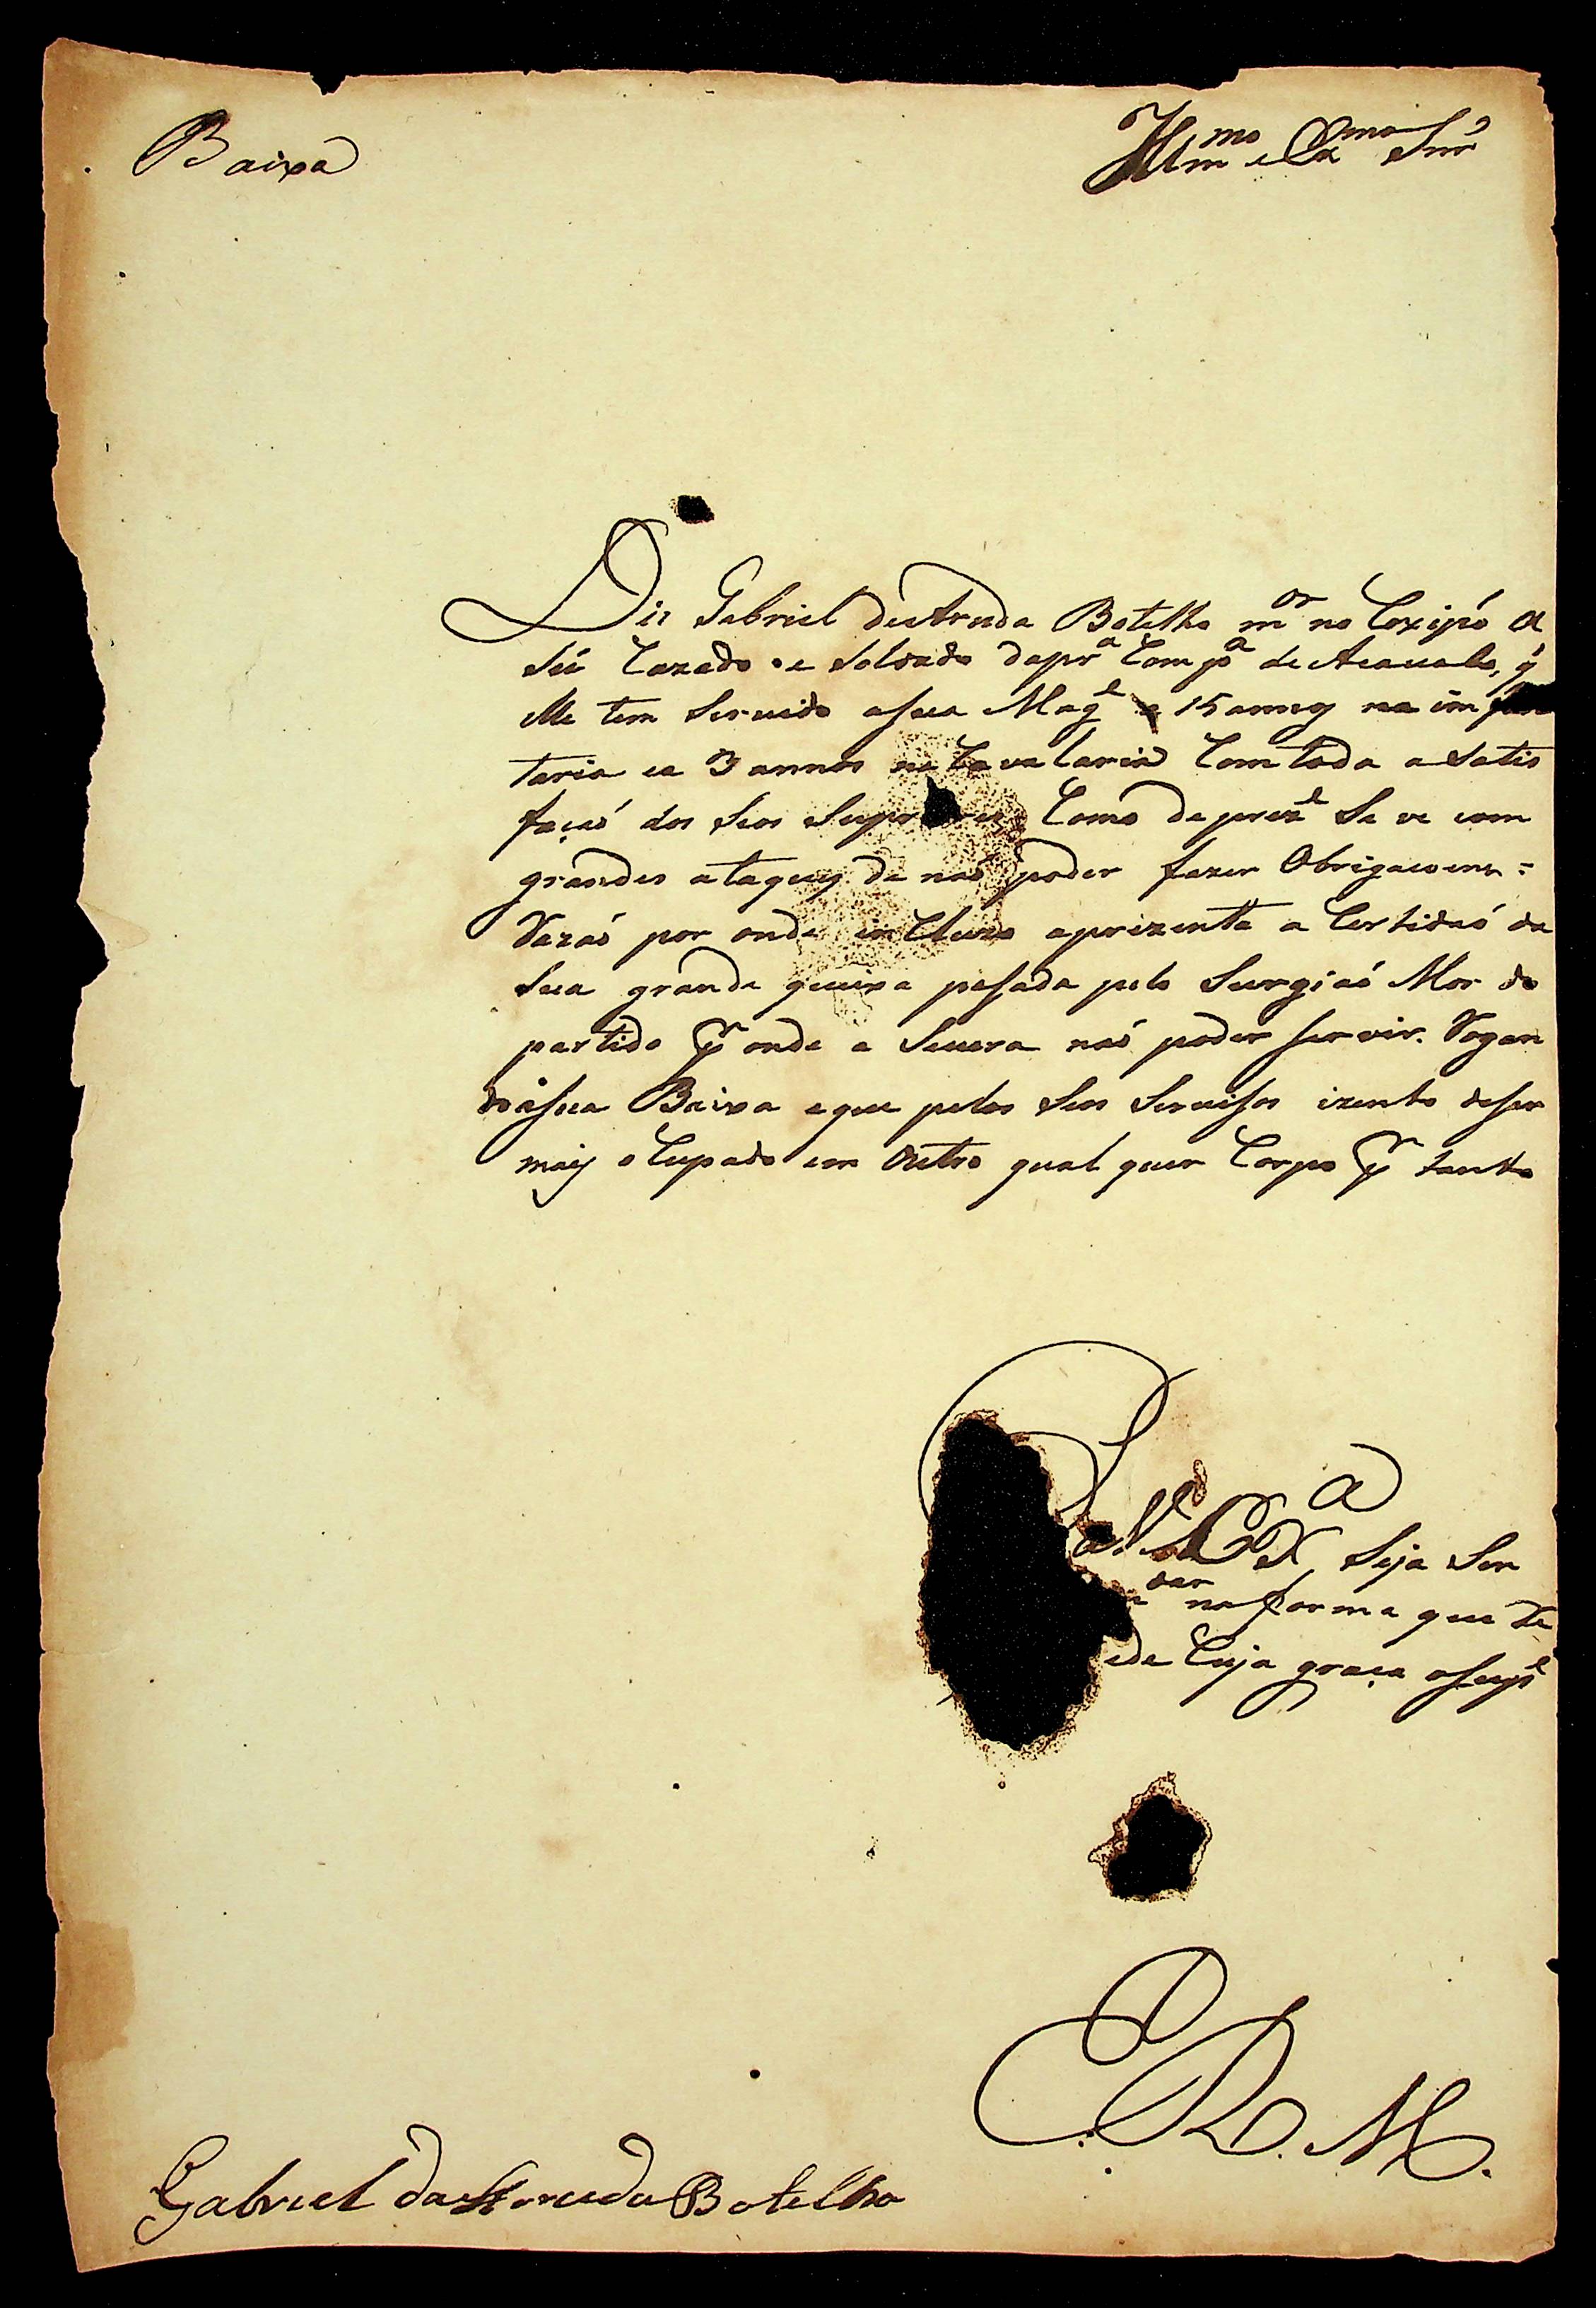 Baixa
Illmo e Exmo Snr
Dis Gabriel de Aruda Botelho mor no Coxipó a
Séu Cazado e e Soldado da pra Compa de Acavalo, q
elle tem Servido a sua Mage a 15 annos na imfan
taria e a 3 annos na Cavalaria Com toda a Satis
façaó dos Seos Supriores Como de preze Se ve com
grandes ataques de naó poder fazer Obrigacoens =
Razaó por onde incluzo aprizenta a Certidaó da
Sua grande queixa pasada pelo Surgiaó Mor do
partido pr onde e Severa naó poder servir. Rogan
do a sua Baixa e que pelos Seos Servisos izento de ser
mais oCupado em Outro qual quer Corpo pr tanto
P.
a V. Exa Seja Ser
der na forma que Re
ede Cuja graça o supe
E. R. M.
Gabriel da Arruda Botelho